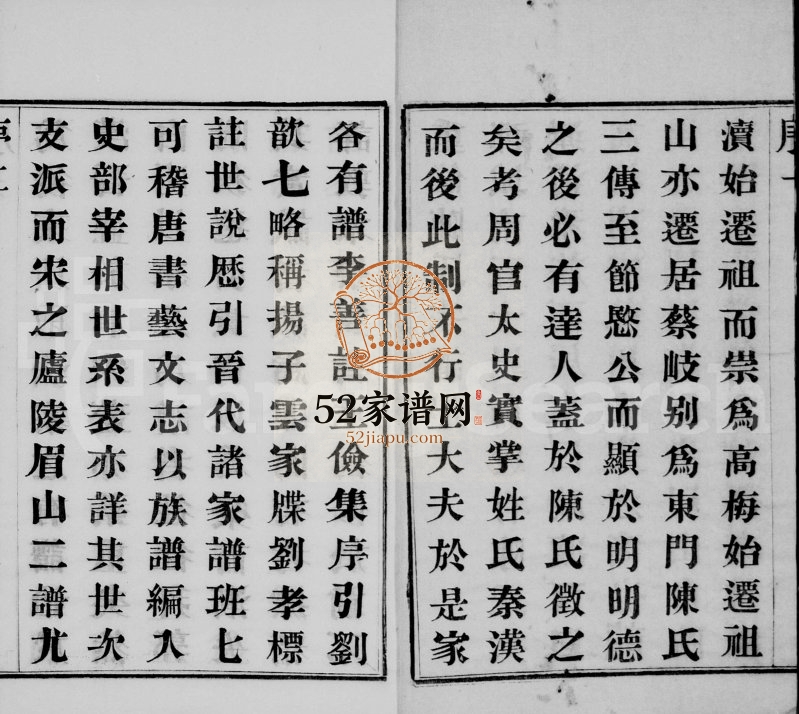 瀆始遷祖而崇為高梅始遷祖
山亦遷居蔡岐别為東門陳氏
三傳至節愍公而顯於明明德
之後必有達人蓋於陳氏徵之
矣考周官太史實掌姓氏秦漢
而後此制不行大夫於是家
各有譜李善註王儉集序引劉
歆七略稱揚子雲家牒劉孝標
註世說歷引晉代諸家譜班七
可稽唐書藝文志以族譜編入
史部宰相世系表亦詳其世次
支派而宋之廬陵眉山二譜尤
52家谱网
52jiapu.com